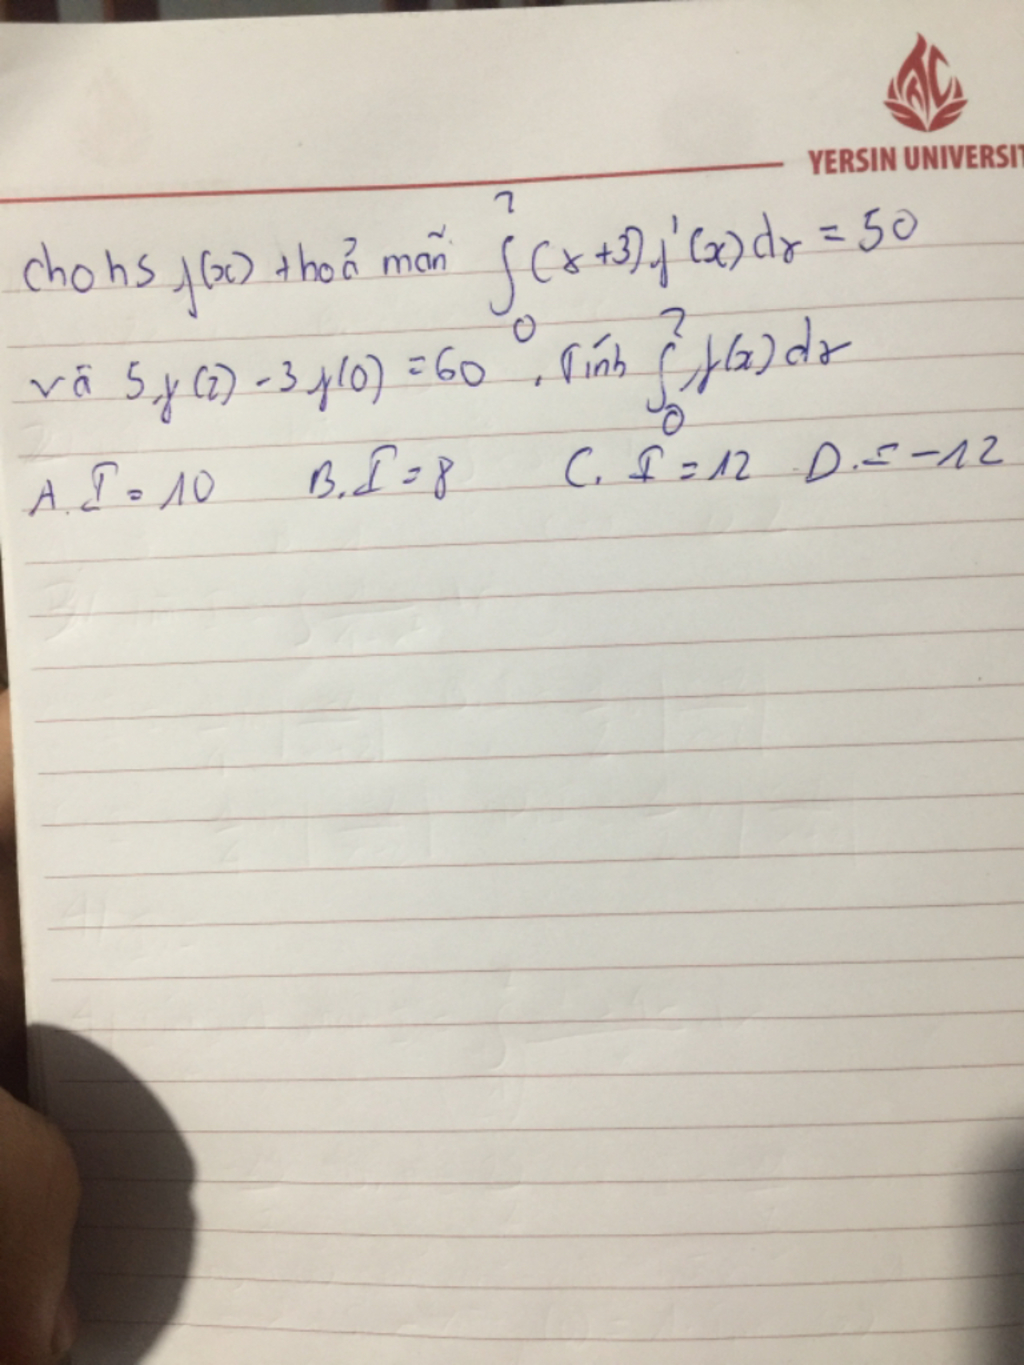 YERSIN UNIVERSIT
cho hs f(x) thoả mãn ∫₀² (x+3) f'(x) dx = 50
và 5f(2) - 3f(0) = 60. Tính ∫₀² f(x) dx
A. I = 10 B. I = 8 C. I = 12 D. I = -12